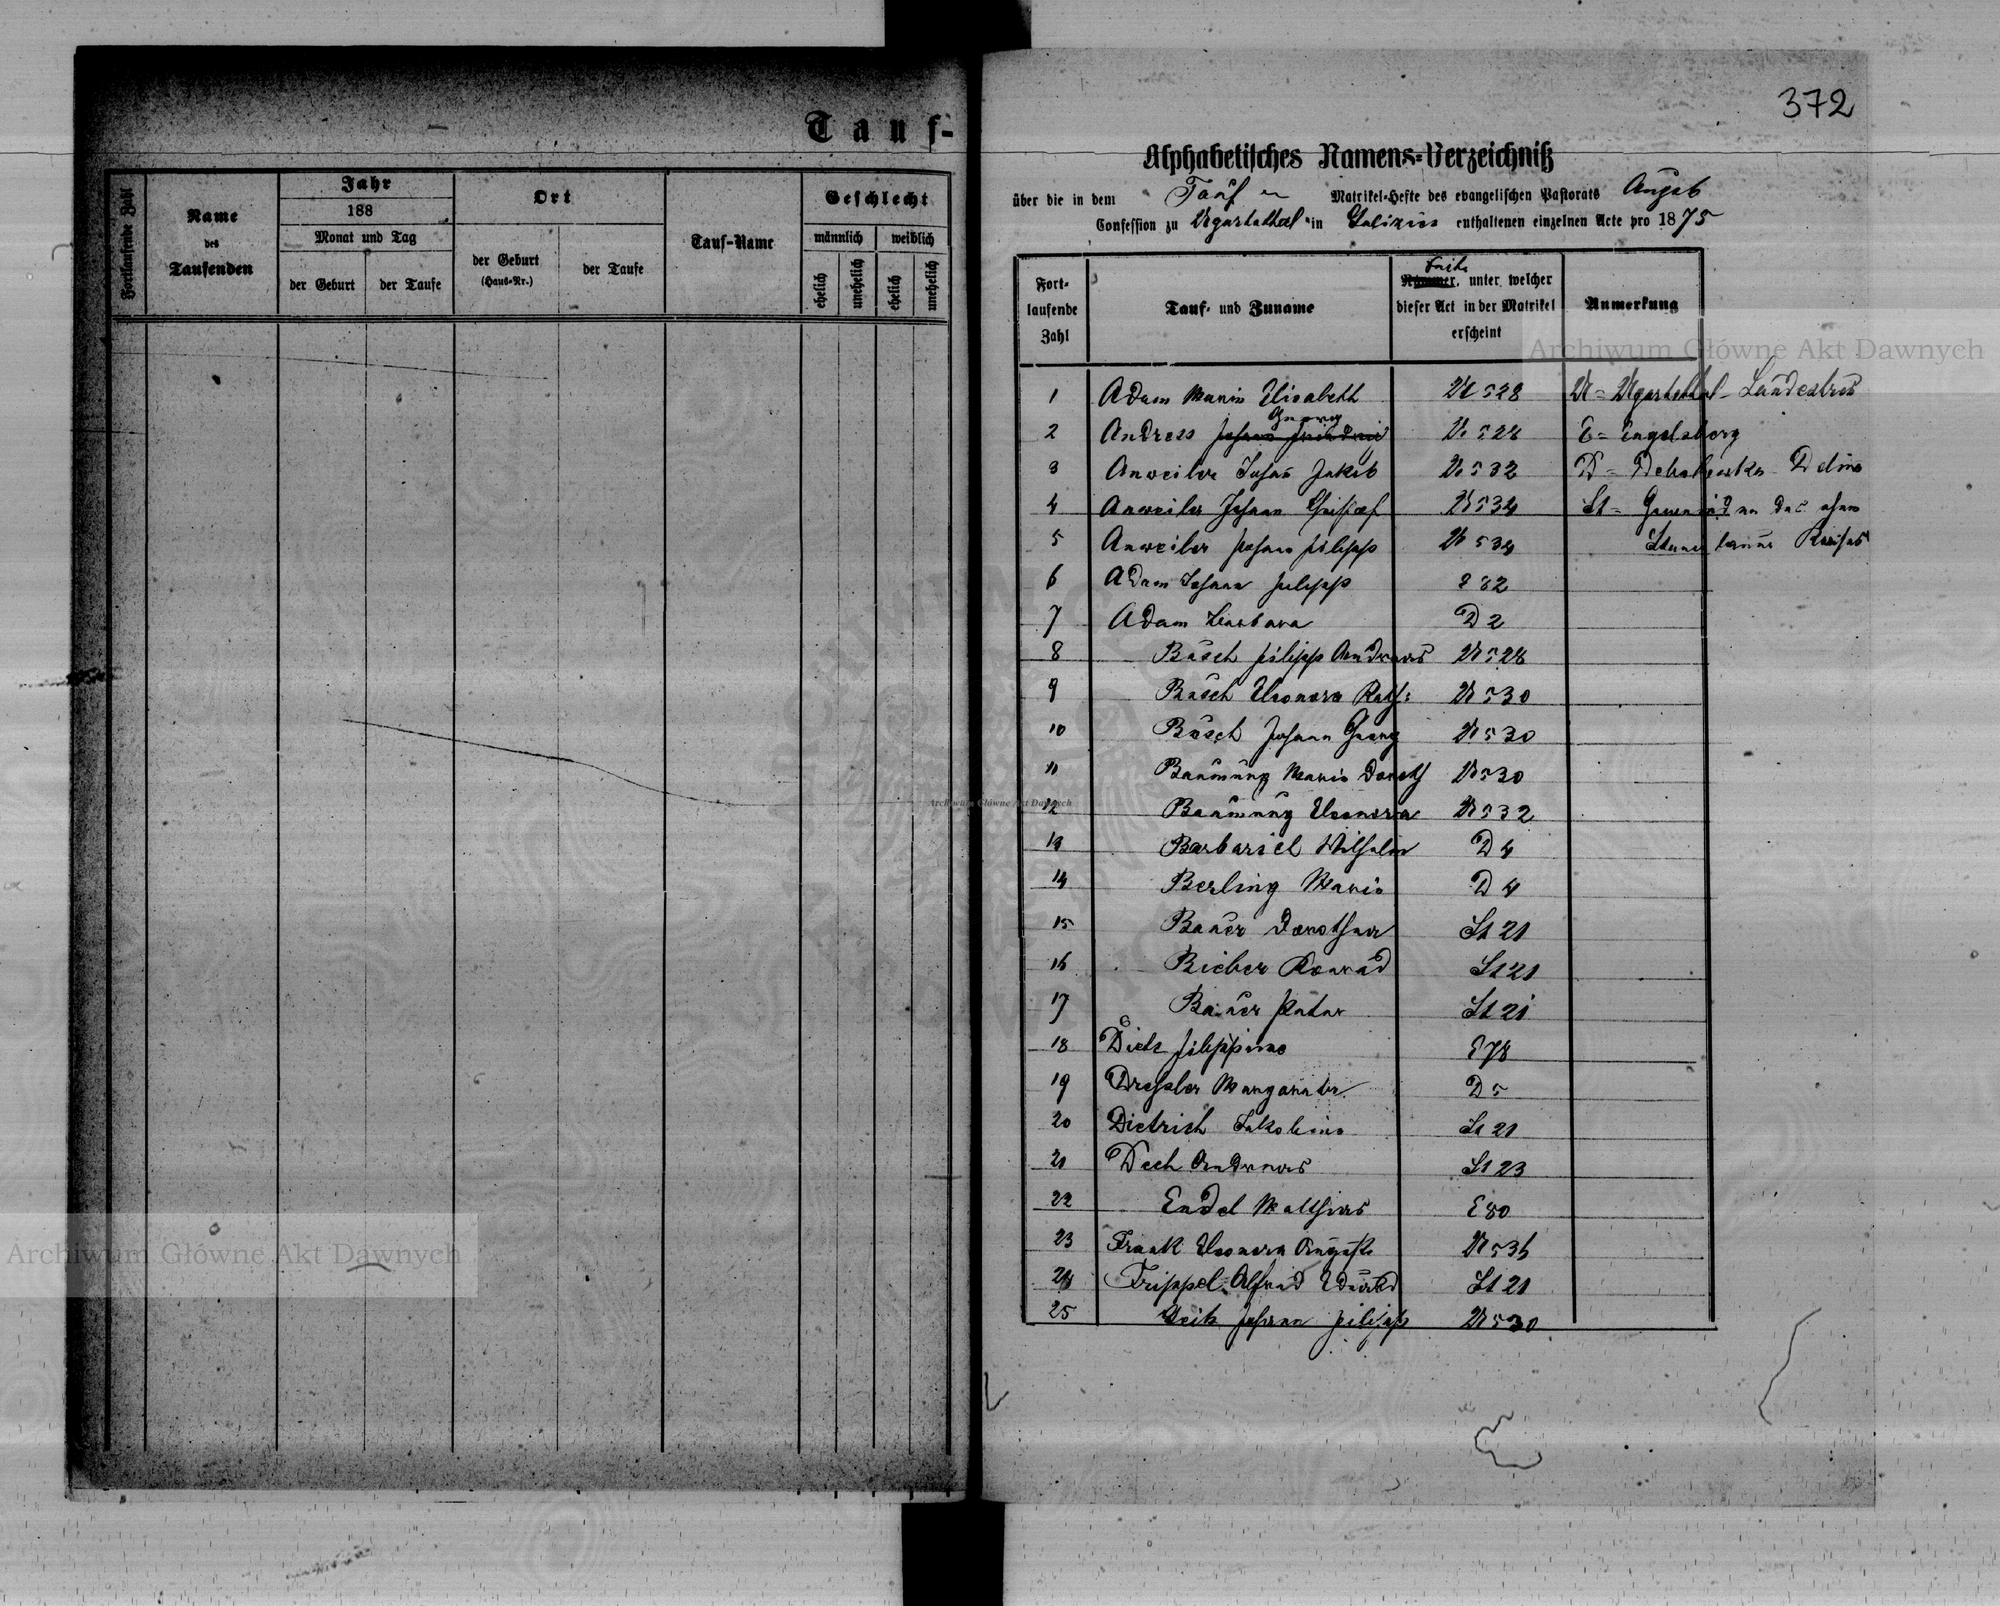 Tauf-
Fortlaufende Zahl
Name
des
Taufenden
Jahr
188
Monat und Tag
der Geburt
der Taufe
Ort
der Geburt
(Haus-Nr.)
der Taufe
Tauf-Name
Geschlecht
männlich
weiblich
ehelich
unehelich
ehelich
unehelich
372
Alphabetisches Namens-Verzeichniß
über die in dem Tauf Matrikel-Hefte des evangelischen Pastorats Augsb
Confession zu Ugartsthal in Galizien enthaltenen einzelnen Acte pro 1875
Fort-
laufende
Zahl
Tauf- und Zuname
Seite
Nummer, unter welcher
dieser Act in der Matrikel
erscheint
Anmerkung
1 Adam Maria Elisabeth U 528 U = Ugartsthal - Landestreu
Georg
2 Andress Johann Friedrich U 528 E = Engelsberg
3 Anweiler Johann Jakob U 532 D =
4 Anweiler Johann Christof U 534 St =
5 Anweiler Johann Filipp U 534
6 Adam Johann Filipp E 82
7 Adam Barbara D 2
8 Basch Filipp Andreas U 528
9 Basch Eleonora Kath: U 530
10 Basch Johann Georg U 530
11 Baumung Maria Doroth U 530
12 Baumung Eleonora U 532
13 Barbariel Wilhelm D 4
14 Berling Maria D 4
15 Bauer Dorothea St 21
16 Bieber Konrad St 21
17 Bauer Peter St 21
18 Diek Filippine E 78
19 Dressler Margaretha D 5
20 Dietrich Jakobine St 21
21 Dech Andreas St 23
22 Endel Mathias E 80
23 Frank Eleonora Auguste U 536
24 Frippel Alfred Eduard St 21
25 Johann Filipp U 530
Archiwum Główne Akt Dawnych
Archiwum Główne Akt Dawnych
Archiwum Główne Akt Dawnych